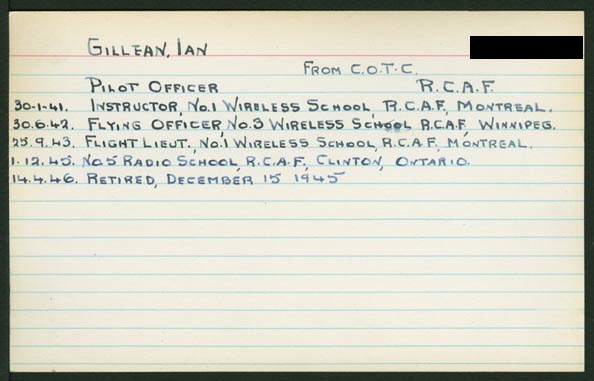 GILLEAN, IAN
FROM C.O.T.C.
PILOT OFFICER R.C.A.F.
30-1-41. INSTRUCTOR, No.1 WIRELESS SCHOOL, R.C.A.F, MONTREAL.
30.6.42. FLYING OFFICER, No.3 WIRELESS SCHOOL R.C.A.F, WINNIPEG.
25.9.43. FLIGHT LIEUT, No.1 WIRELESS SCHOOL, R.C.A.F, MONTREAL.
1.12.45. No.5 RADIO SCHOOL, R.C.A.F, CLINTON, ONTARIO.
14.4.46. RETIRED, DECEMBER 15 1945